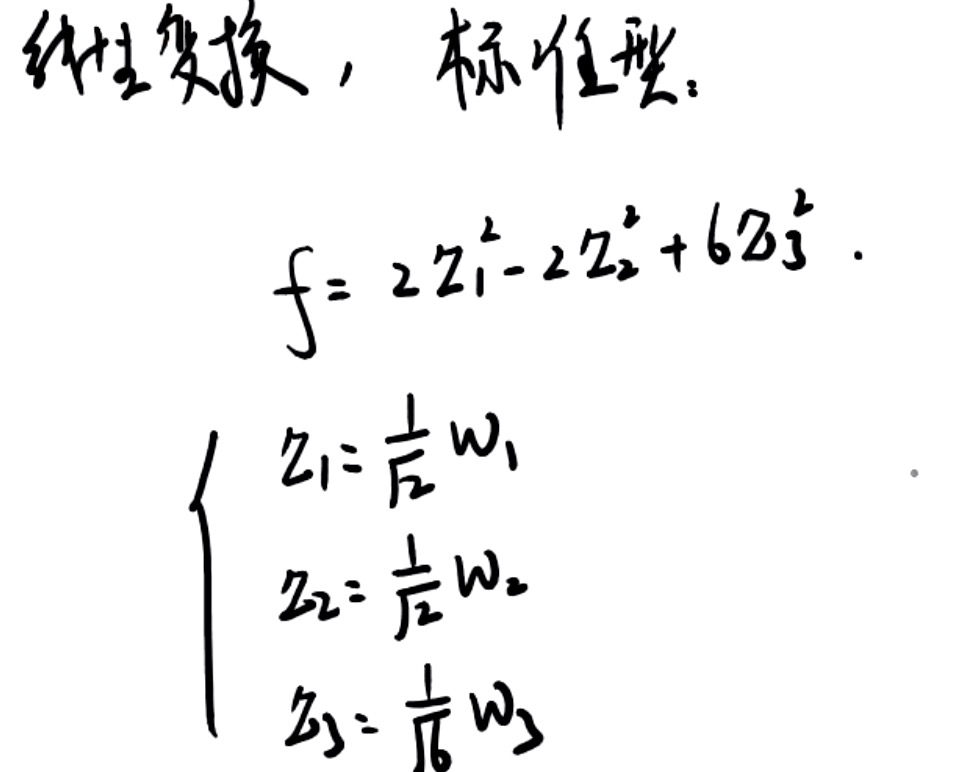 线性变换，标准型：
f = 2Z₁² - 2Z₂² + 6Z₃² .
Z₁ = 1/√2 W₁
Z₂ = 1/√2 W₂
Z₃ = 1/√6 W₃